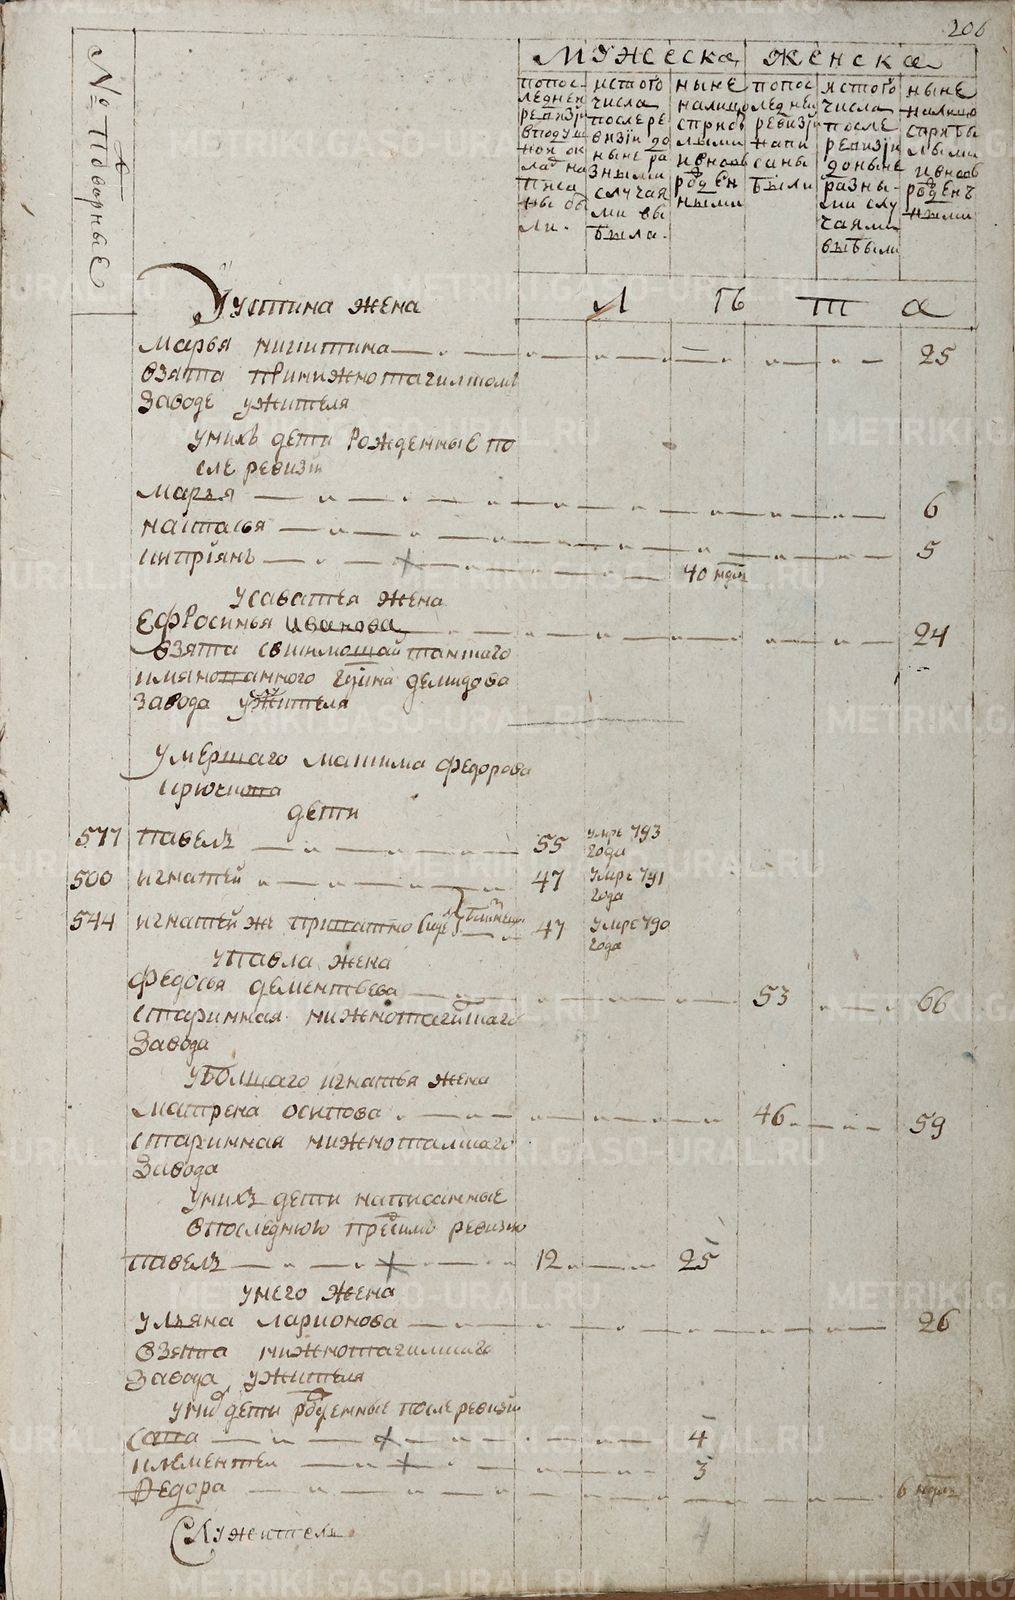 206
№ подворные
МУЖЕСКА
ЖЕНСКА
попос-
леднеи
ревизiи
вподуш
ной ок
лад на
писа
ны бы
ли.
истого
числа
после ре
визiи до
ныне ра
зными
случая
ми вы
была.
ныне
налицо
сприб
лыми
ивновь
рожден
ными
попос
ледней
ревизiи
напи
саны
были
истого
числа
после
ревизiи
доныне
разны-
ми слу
чаями
выбыли
ныне
налицо
сприбы
лыми
ивновь
рожден
ными
Л Ѣ Т А
Устина жена
Марья никитина 25
взята принижнотагилском
заводе ужителя
униxъ дети Рожденные по
сле ревизiи
марья 6
настасья 5
киприянъ 40 недл
Усаватея жена
ЕфРосинья иванова 24
взята
имянованного гдина демидова
завода ужителя
умершаго максима федорова
крючкова
дети
577 павелъ 55 умре 793
года
500 игнатей 47 умре 791
года
544 игнатей жъ 47 умре 790
года
упавла жена
Федосья дементьева 53 66
старинная нижнотагилшаго
завода
уболшаго игнатья жена
матрена осипова 46 59
старинная нижноталшаго
завода
унихъ дети написанные
впоследнюю пред симъ ревизию
павелъ 12 25
унего жена
ульяна ларионова 26
взята нижнотагилшаго
завода ужителя
униx дети рожденные после ревизiи
сава 4
климентеи 3
Федора 6 недл
Служителя